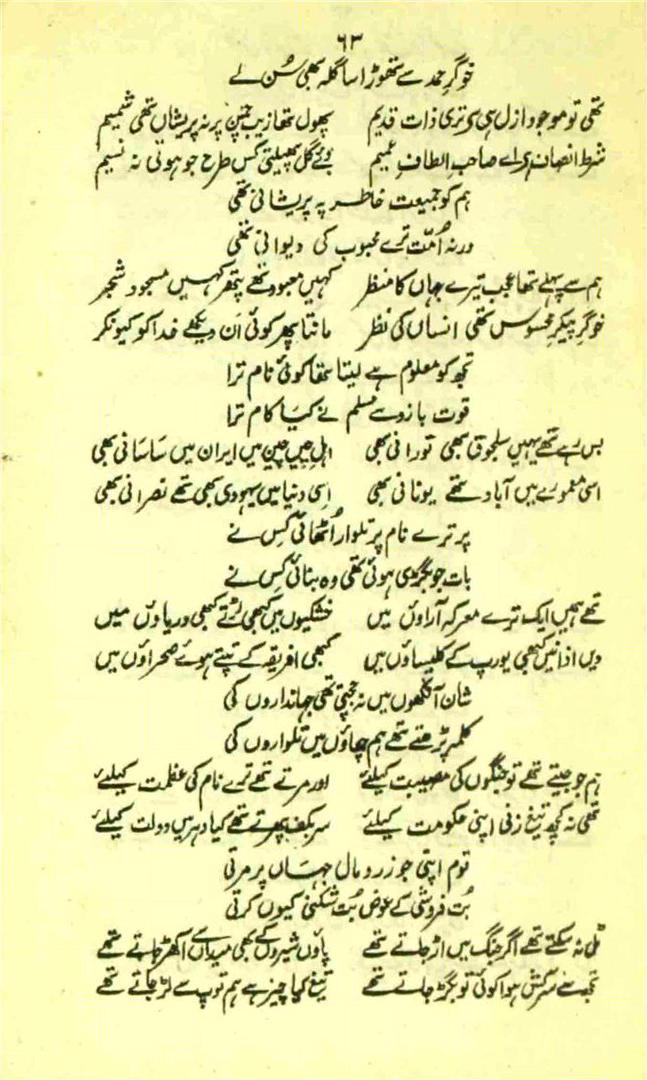 ٦٣
خوگرِ حمد سے تھوڑا سا گلہ بھی سُن لے
تھی تو موجود ازل ہی سے تری ذات قدیم پھول تھا زیبِ چمن پر نہ پریشاں تھی شمیم
شرط انصاف ہے اے صاحبِ الطافِ عمیم بوئے گل پھیلتی کس طرح جو ہوتی نہ نسیم
ہم کو جمعیت خاطر یہ پریشانی تھی
ورنہ اُمّت ترے محبوب کی دیوانی تھی
ہم سے پہلے تھا عجب تیرے جہاں کا منظر کہیں معبود تھے پتھر کہیں مسجود شجر
خوگرِ پیکرِ محسوس تھی انساں کی نظر مانتا پھر کوئی اَن دیکھے خدا کو کیونکر
تجھ کو معلوم ہے لیتا تھا کوئی نام ترا
قوت بازوے مسلم نے کیا کام ترا
بس رہے تھے یہیں سلجوق بھی تورانی بھی اہلِ چیں چین میں ایران میں ساسانی بھی
اسی معمورے میں آباد تھے یونانی بھی اِسی دنیا میں یہودی بھی تھے نصرانی بھی
پر ترے نام پر تلوار اُٹھائی کِس نے
بات جو بگڑی ہوئی تھی وہ بنائی کِس نے
تھے ہمیں ایک ترے معرکہ آراؤں میں خشکیوں میں کبھی لڑتے کبھی دریاؤں میں
دیں اذانیں کبھی یورپ کے کلیساؤں میں کبھی افریقہ کے تپتے ہوئے صحراؤں میں
شان آنکھوں میں نہ جچتی تھی جہانداروں کی
کلمہ پڑھتے تھے ہم چھاؤں میں تلواروں کی
ہم جو جیتے تھے تو جنگوں کی مصیبت کیلئے اور مرتے تھے ترے نام کی عظمت کیلئے
تھی نہ کچھ تیغ زنی اپنی حکومت کیلئے سر بکف پھرتے تھے کیا دہر میں دولت کیلئے
قوم اپنی جو زر و مال جہاں پر مرتی
بُت فروشی کے عوض بُت شکنی کیوں کرتی
ٹل نہ سکتے تھے اگر جنگ میں اڑ جاتے تھے پاؤں شیروں کے بھی میداں سے اکھڑ جاتے تھے
تجھ سے سرکش ہوا کوئی تو بگڑ جاتے تھے تیغ کیا چیز ہے ہم توپ سے لڑ جاتے تھے